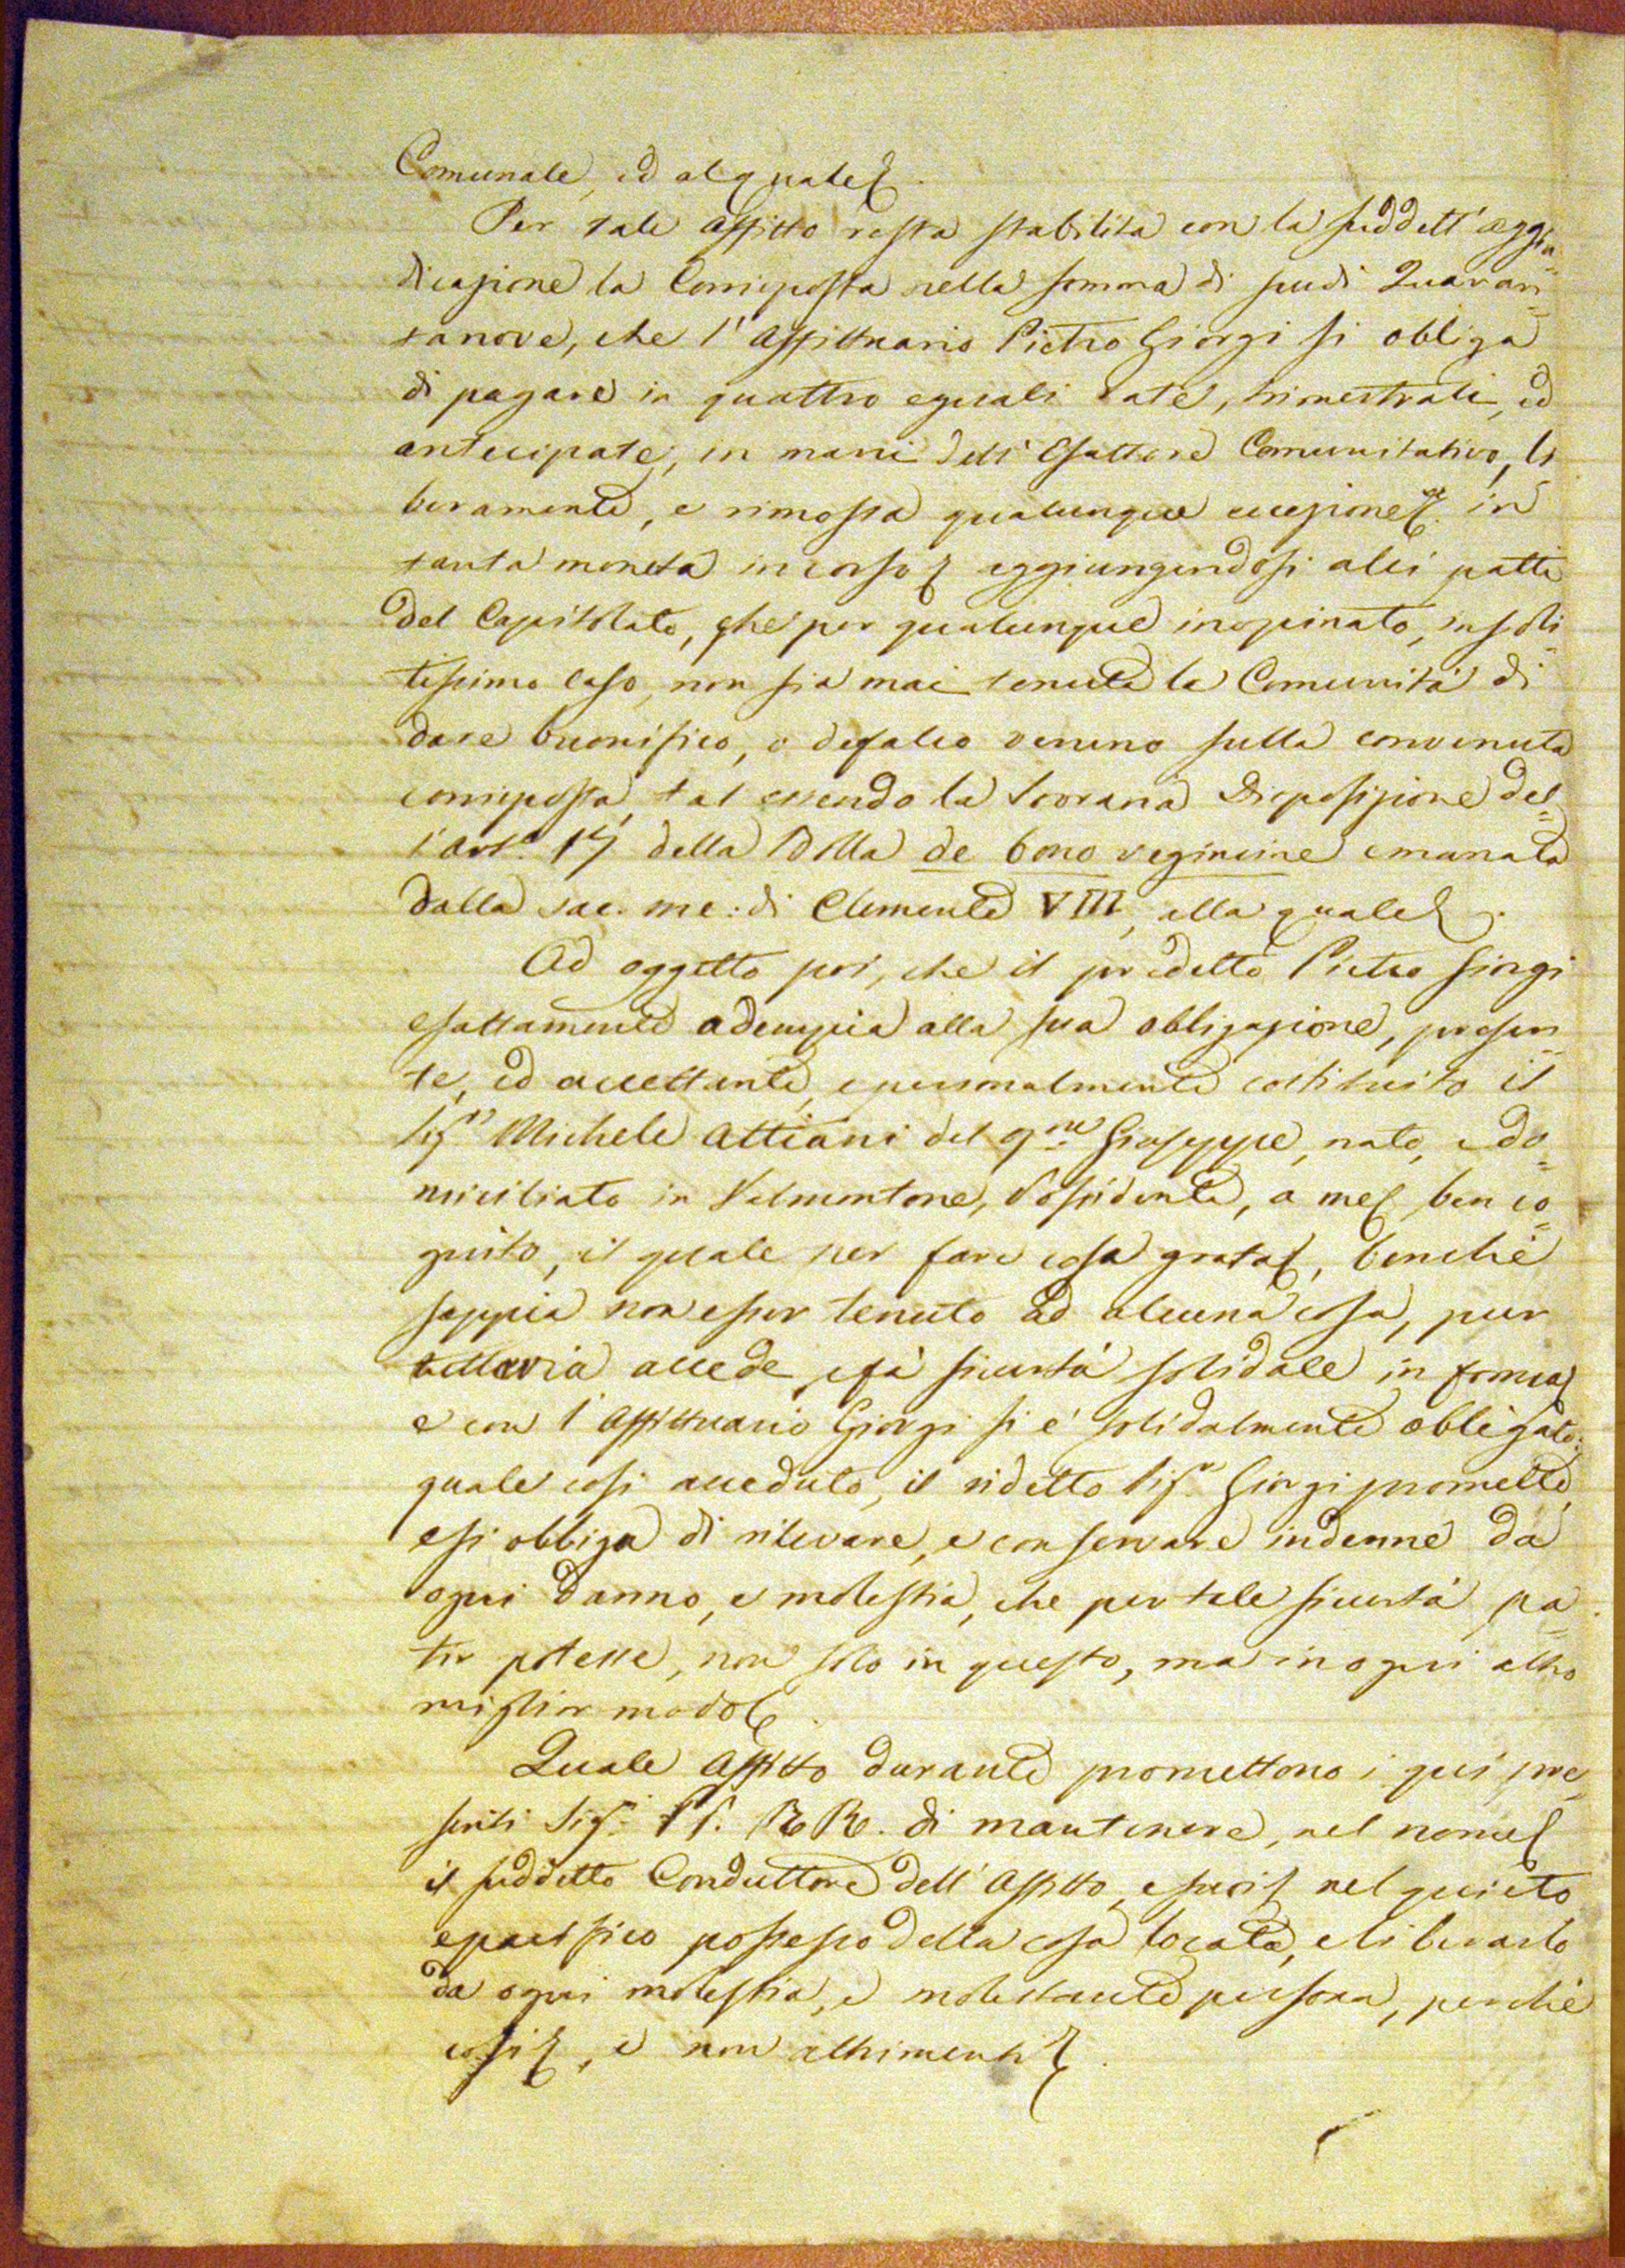 Comunale, ed al quale
Per tale affitto resta stabilita con la suddett' aggiu=
dicazione la Corrisposta nella somma di scudi Quaran=
tanove, che l'Affittuario Pietro Giorgi si obliga
di pagare in quattro eguali rate, trimestrali, ed
antecipate, in mani dell' Esattore Comunitativo, li=
beramente, e rimossa qualunque eccezione in
tanta moneta in corso aggiungendosi alli patti
del Capitolato, che per qualunque inopinato, insoli=
tissimo caso, non sia mai tenuta la Comunità di
dare buonifico, o defalco veruno sulla convenuta
corrisposta, tal essendo la Sovrana Disposizione del=
l'art.º 17 della Bolla de bono regimine emanata
dalla sac. me: di Clemente VIII, alla quale
Ad oggetto poi, che il predetto Pietro Giorgi
esattamente adempia alla sua obligazione, presen=
te, ed accettante, e personalmente costituito il
Sig.r Michele Attiani del q.m Giuseppe, nato, e do=
miciliato in Valmontone, Possidente, a me ben co=
gnito, il quale per fare cosa grata, benchè
sappia non esser tenuto ad alcuna cosa, pur
tuttavia accede, e fà sicurtà solidale in forma
e con l'Affittuario Giorgi si è solidalmente obligato:
quale così acceduto, il ridetto Sig.r Giorgi promette,
e si obbliga di rilevare, e conservare indenne da
ogni danno, e molestia, che per tale sicurtà pa=
tir potesse, non solo in questo, ma in ogni altro
miglior modo
Quale Affitto durante promettono i quì pre=
senti Sig.i SS. RR. di mantenere, nel nome
il suddetto Conduttore dell' Affitto, e suoi nel quieto
e pacifico possesso della cosa locata, e liberarlo
da ogni molestia, e molestante persona, perchè
così, e non altrimenti